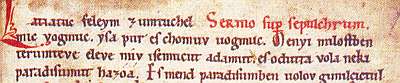 Latiatuc feleym ʒ zumtuchel Sermo sup sepulchrum.
mic vogmuc. ysa pur es chomuv uogmuc. Menyi milostben
terumteve eleve miv isemucut adamut. es odutta vola neki
paradisumut hazoa. Es mend paradisumben uolov gimilcictul